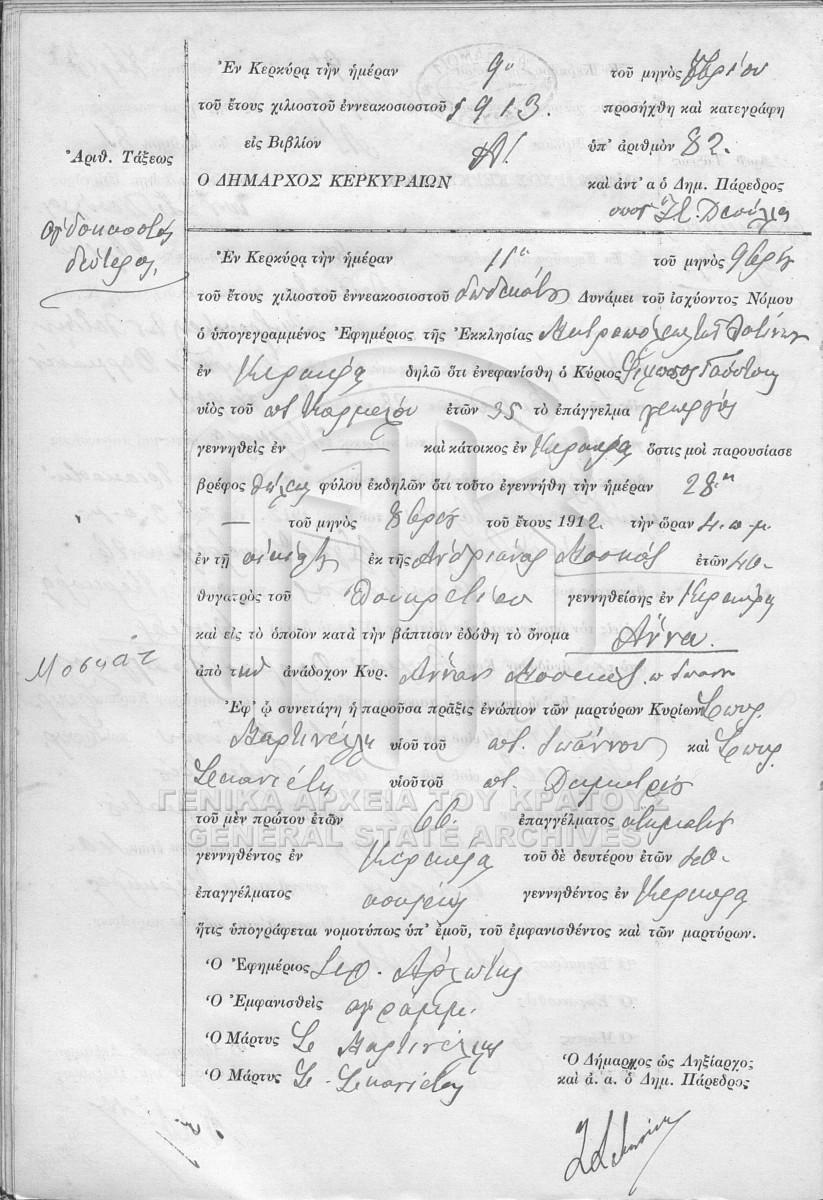 Ἐν Κερκύρᾳ τὴν ἡμέραν 9η τοῦ μηνὸς
τοῦ ἔτους χιλιοστοῦ ἐννεακοσιοστοῦ 1913. προσήχθη καὶ κατεγράφη
εἰς Βιβλίον Αʹ. ὑπ' ἀριθμὸν 82.
Ὁ ΔΗΜΑΡΧΟΣ ΚΕΡΚΥΡΑΙΩΝ καὶ ἀντ' α ὁ Δημ. Πάρεδρος
Ἀριθ. Τάξεως
ὀγδοηκοστὸς
δεύτερος
Ἐν Κερκύρᾳ τὴν ἡμέραν 11η τοῦ μηνὸς 9βρίου
τοῦ ἔτους χιλιοστοῦ ἐννεακοσιοστοῦ δωδεκάτου Δυνάμει τοῦ ἰσχύοντος Νόμου
ὁ ὑπογεγραμμένος Ἐφημέριος τῆς Ἐκκλησίας Μητροπόλεως Λατίνων
ἐν Κερκύρᾳ δηλῶ ὅτι ἐνεφανίσθη ὁ Κύριος
υἱὸς τοῦ ποτ Καρμέλου ἐτῶν 35 τὸ ἐπάγγελμα γεωργὸς
γεννηθεὶς ἐν — καὶ κάτοικος ἐν Κερκύρᾳ ὅστις μοὶ παρουσίασε
βρέφος θήλεος φύλου ἐκδηλῶν ὅτι τοῦτο ἐγεννήθη τὴν ἡμέραν 28η
— τοῦ μηνὸς 8βρίου τοῦ ἔτους 1912. τὴν ὥραν 4. π.μ.
ἐν τῇ οἰκίᾳ ἐκ τῆς Ἀνδριάνας Μοσκὰτ ἐτῶν 40-
θυγατρὸς τοῦ Λουκρετίου γεννηθείσης ἐν Κερκύρᾳ
καὶ εἰς τὸ ὁποῖον κατὰ τὴν βάπτισιν ἐδόθη τὸ ὄνομα Ἄννα.
Μοσκάτ
ἀπὸ τὴν ἀνάδοχον Κυρ. Ἄνναν Μοσκὰτ π Ἰωάνν
Ἐφ' ᾧ συνετάγη ἡ παροῦσα πρᾶξις ἐνώπιον τῶν μαρτύρων Κυρίων Σπυρ.
Μαρτινέλη υἱοῦ τοῦ ποτ. Ἰωάννου καὶ Σπυρ.
Σκανιέτη υἱοῦ τοῦ ποτ. Δημητρίου
ΓΕΝΙΚΑ ΑΡΧΕΙΑ ΤΟΥ ΚΡΑΤΟΥΣ
τοῦ μὲν πρώτου ἐτῶν 66. ἐπαγγέλματος κτηματίου
GENERAL STATE ARCHIVES
γεννηθέντος ἐν Κερκύρᾳ τοῦ δὲ δευτέρου ἐτῶν 40-
ἐπαγγέλματος γεννηθέντος ἐν Κερκύρᾳ
ἥτις ὑπογράφεται νομοτύπως ὑπ' ἐμοῦ, τοῦ ἐμφανισθέντος καὶ τῶν μαρτύρων.
Ὁ Ἐφημέριος
Ὁ Ἐμφανισθεὶς ἀγράμμ.
Ὁ Μάρτυς Σ Μαρτινέλης
Ὁ Μάρτυς Σ. Σκανιέτης
Ὁ Δήμαρχος ὡς Ληξίαρχος
καὶ ἀ. ἀ. ὁ Δημ. Πάρεδρος